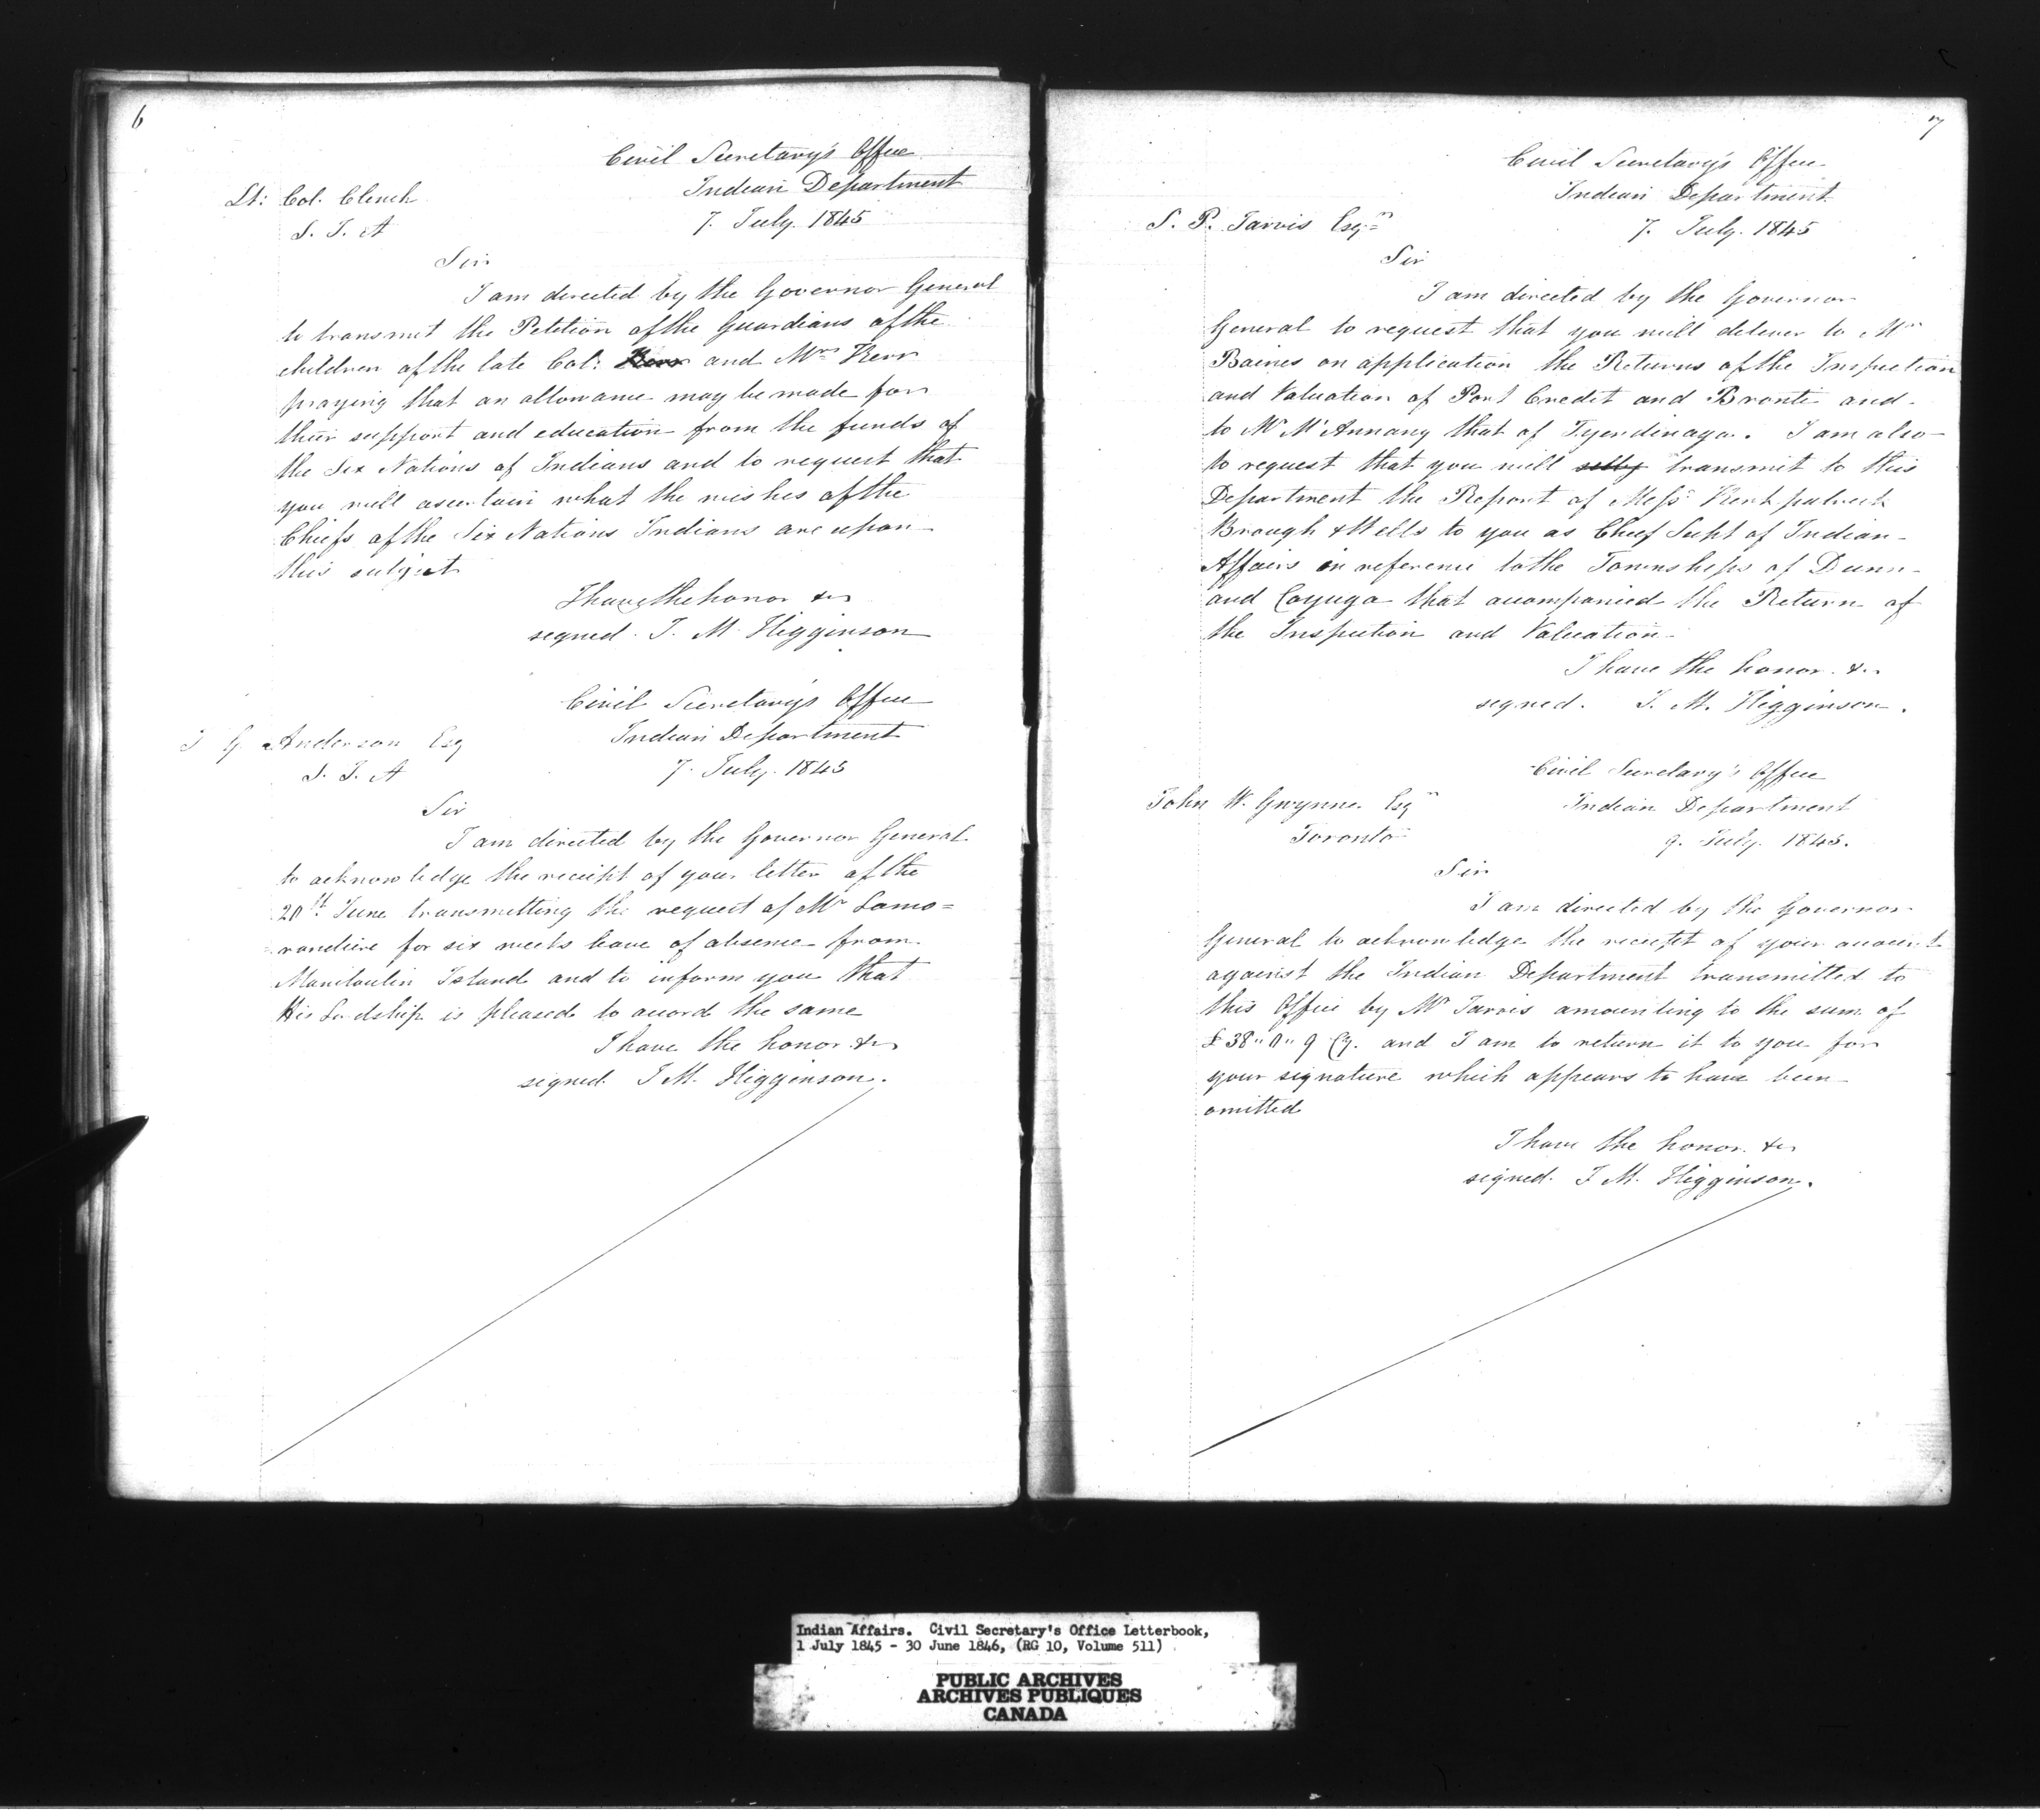 6
Civil Secretary's Office
Indian Department
7. July. 1845
Lt: Col. Clench
S. I. A
Sir
I am directed by the Governor General
to transmit the Petition of the Guardians of the
children of the late Col: Kerr and Mrs Kerr
praying that an allowance may be made for
their support and education from the funds of
the Six Nations of Indians and to request that
you will ascertain what the wishes of the
Chiefs of the Six Nations Indians are upon
this subject
I have the honor &c
signed. J. M. Higginson
Civil Secretary's Office
Indian Department
7. July. 1845
T G Anderson Esq
S. I. A
Sir
I am directed by the Governor General
to acknowledge the receipt of your letter of the
20th June transmitting the request of Mr Lamo=
=randiere for six weeks leave of absence from
Manitoulin Island and to inform you that
His Lordship is pleased to accord the same
I have the honor &c
signed J M. Higginson.
7
Civil Secretary's Office
Indian Department
7. July. 1845
S. P. Jarvis Esqre
Sir
I am directed by the Governor
General to request that you will deliver to Mr
Baines on application the Returns of the Inspection
and Valuation of Port Credit and Bronte and
to Mr McAnnany that of Tyendinaga. I am also
to request that you will transmit to this
Department the Report of Messrs Kirkpatrick
Brough & Wells to you as Chief Supt of Indian
Affairs in reference to the Townships of Dunn
and Cayuga that accompanied the Return of
the Inspection and Valuation
I have the honor. &c
signed. J. M. Higginson.
Civil Secretary's Office
Indian Department
9. July. 1845.
John W. Gwynne Esqr
Toronto
Sir
I am directed by the Governor
General to acknowledge the receipt of your account
against the Indian Department transmitted to
this Office by Mr Jarvis amounting to the sum of
£38"0"9 Cy. and I am to return it to you for
your signature which appears to have been
omitted
I have the honor. &c
signed. J M. Higginson.
Indian Affairs. Civil Secretary's Office Letterbook,
1 July 1845 - 30 June 1846, (RG 10, Volume 511)
PUBLIC ARCHIVES
ARCHIVES PUBLIQUES
CANADA